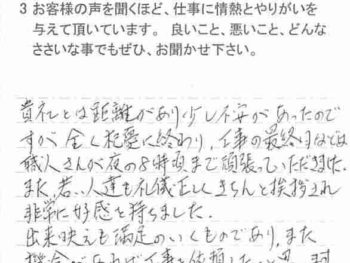 3 お客様の声を聞くほど、仕事に情熱とやりがいを
与えて頂いています。 良いこと、悪いこと、どんな
ささいな事でもぜひ、お聞かせ下さい。
貴社とは距離があり少し不安があったので
すが 全く杞憂に終わり、工事の最終日などは
職人さんが夜の8時頃まで頑張っていただきました。
また、若い人達も礼儀正しくきちんと挨拶され
非常に好感を持ちました。
出来映えも満足のいくものであり、また
機会があれば工事を依頼したいと思